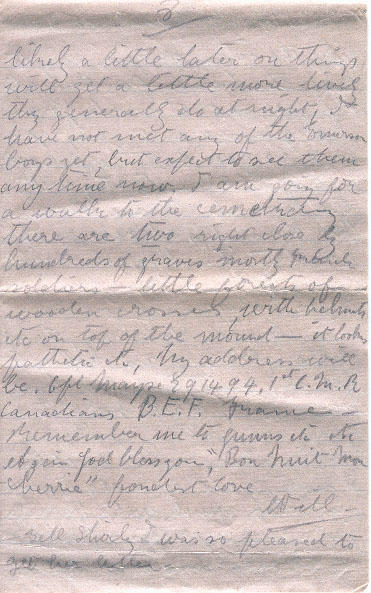 3
likely a little later on things
will get a little more lively
they generally do at night, I
have not met any of the
boys yet, but expect to see them
any time now I am going for
a walk to the cemetery
there are two right close by
hundreds of graves mostly French
soldiers – little forests of
wooden crosses, with helmets
etc on top of the mound – it looks
pathetic etc, My address will
be. Cpl 291494, 1st C.M.R
Canadians B.E.F. France –
Remember me to etc etc
again God bless you, "Bon Nuit Mon
Cherrie" fondest love
Will –
– Tell Shirley I was so pleased to
get her letter –